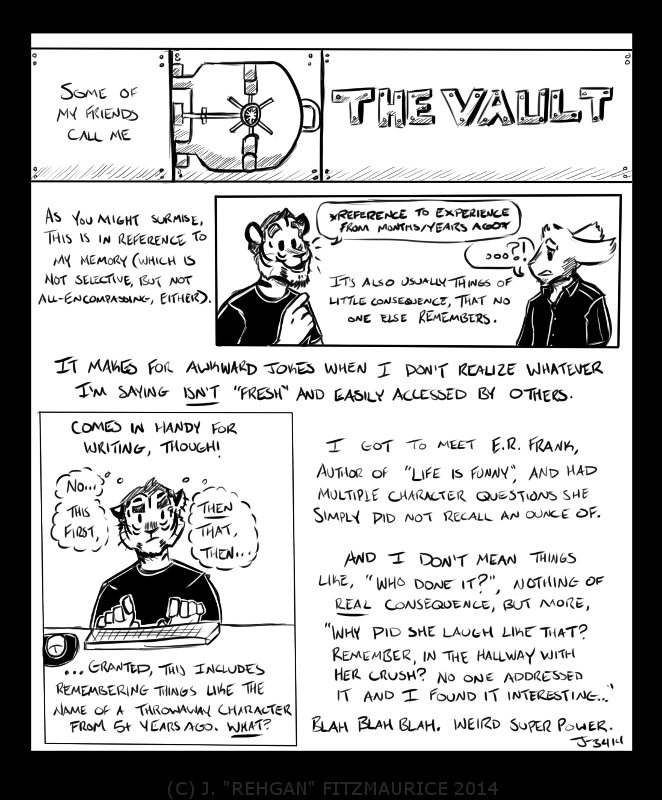 SOME OF
MY FRIENDS
CALL ME
THE VAULT
AS YOU MIGHT SURMISE,
THIS IS IN REFERENCE TO
MY MEMORY (WHICH IS
NOT SELECTIVE, BUT NOT
ALL-ENCOMPASSING, EITHER).
*REFERENCE TO EXPERIENCE
FROM MONTHS/YEARS AGO*
...?!
IT'S ALSO USUALLY THINGS OF
LITTLE CONSEQUENCE, THAT NO
ONE ELSE REMEMBERS.
IT MAKES FOR AWKWARD JOKES WHEN I DON'T REALIZE WHATEVER
I'M SAYING ISN'T "FRESH" AND EASILY ACCESSED BY OTHERS.
COMES IN HANDY FOR
WRITING, THOUGH!
NO...
THIS
FIRST,
THEN
THAT,
THEN...
...GRANTED, THIS INCLUDES
REMEMBERING THINGS LIKE THE
NAME OF A THROWAWAY CHARACTER
FROM 5+ YEARS AGO. WHAT?
I GOT TO MEET E.R. FRANK,
AUTHOR OF "LIFE IS FUNNY", AND HAD
MULTIPLE CHARACTER QUESTIONS SHE
SIMPLY DID NOT RECALL AN OUNCE OF.
AND I DON'T MEAN THINGS
LIKE, "WHO DONE IT?", NOTHING OF
REAL CONSEQUENCE, BUT MORE,
"WHY DID SHE LAUGH LIKE THAT?
REMEMBER, IN THE HALLWAY WITH
HER CRUSH? NO ONE ADDRESSED
IT AND I FOUND IT INTERESTING..."
BLAH BLAH BLAH. WEIRD SUPER POWER.
J-3414
(C) J. "REHGAN" FITZMAURICE 2014